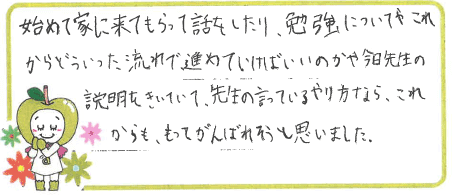 始めて家に来てもらって話をしたり、勉強についてや これ
からどういった流れで進めていけばいいのかや今日先生の
説明をきいていて、先生の言っているやり方なら、これ
からも、もってがんばれそうと思いました。